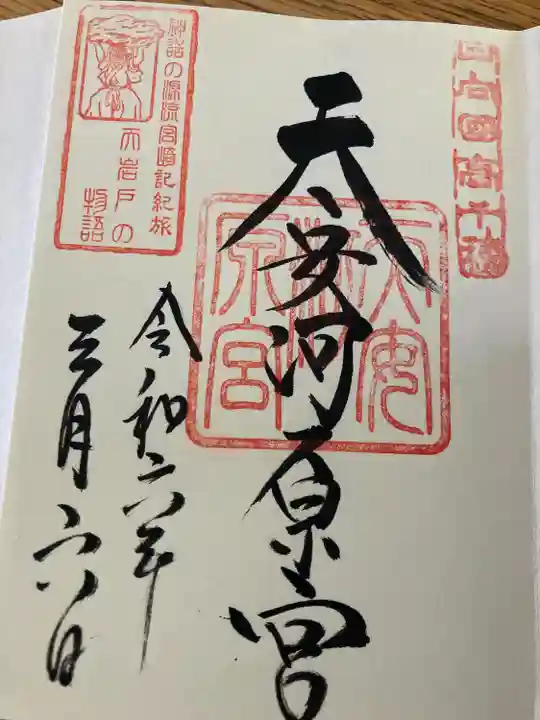 日向國高千穂
天安河原宮
天安河原宮
令和六年
三月六日
神話の源流宮崎記紀旅
天岩戸の
物語